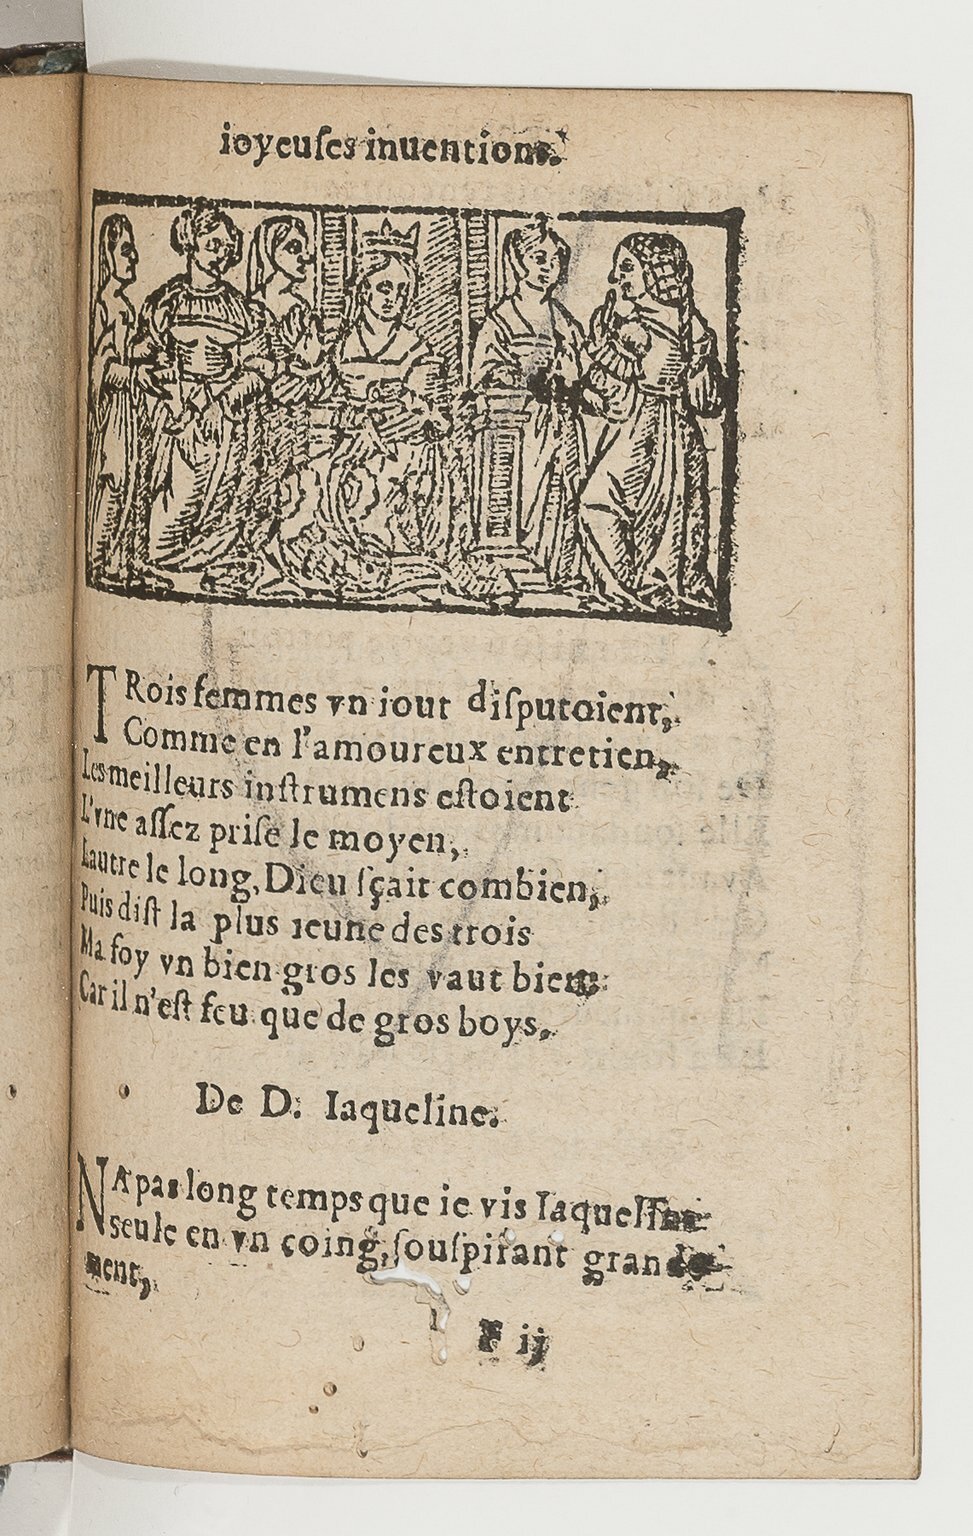 ioyeuſes inuentions.
TRois femmes vn iour diſputoient,
Comme en l'amoureux entretien,
Les meilleurs inſtrumens eſtoient
L'vne aſſez priſe le moyen,
Lautre le long, Dieu ſçait combien,
Puis diſt la plus ieune des trois
Ma foy vn bien gros les vaut bien:
Car il n'eſt feu que de gros boys,
De D. Iaqueline.
NA pas long temps que ie vis Iaqueline
seule en vn coing, ſouſpirant grande
ment,
F ij